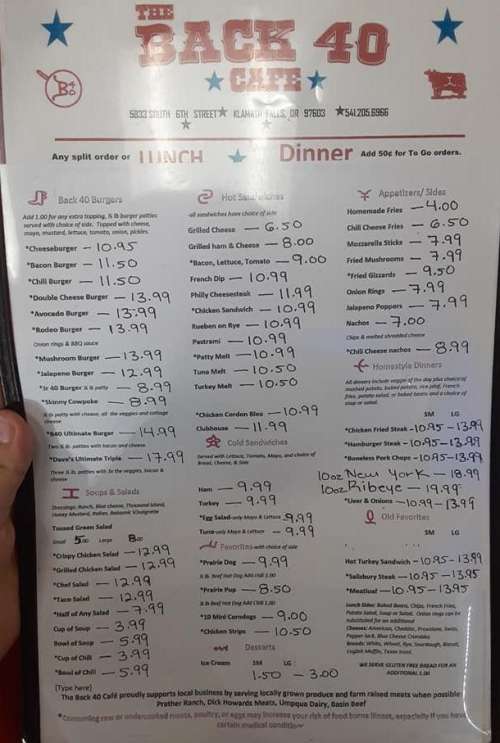 THE
BACK 40
CAFE
5833 SOUTH 6TH STREET KLAMATH FALLS, OR 97603 541.205.6966
Any split order or LUNCH Dinner Add 50¢ for To Go orders.
Back 40 Burgers
Add 1.00 for any extra topping, ⅓ lb burger patties
served with choice of side. Topped with cheese,
mayo, mustard, lettuce, tomato, onion, pickles.
*Cheeseburger — 10.95
*Bacon Burger — 11.50
*Chili Burger — 11.50
*Double Cheese Burger — 13.99
*Avocado Burger — 13.99
*Rodeo Burger — 13.99
Onion rings & BBQ sauce
*Mushroom Burger — 13.99
*Jalapeno Burger — 12.99
*Jr 40 Burger ¼ lb patty — 8.99
*Skinny Cowpoke — 8.99
⅓ lb patty with cheese, all the veggies and cottage
cheese
*B40 Ultimate Burger — 14.99
Two ⅓ lb. patties with bacon and cheese
*Dave's Ultimate Triple — 17.99
Three ⅓ lb. patties with 3x the veggies, bacon &
cheese
Soups & Salads
Dressings: Ranch, Blue cheese, Thousand Island,
Honey Mustard, Italian, Balsamic Vinaigrette
Tossed Green Salad
Small 5.00 Large 8.00
*Crispy Chicken Salad — 12.99
*Grilled Chicken Salad — 12.99
*Chef Salad — 12.99
*Taco Salad — 12.99
*Half of Any Salad — 7.99
Cup of Soup — 3.99
Bowl of Soup — 5.99
*Cup of Chili — 3.99
*Bowl of Chili — 5.99
[Type here]
Hot Sandwiches
all sandwiches have choice of side
Grilled Cheese — 6.50
Grilled ham & Cheese — 8.00
*Bacon, Lettuce, Tomato — 9.00
French Dip — 10.99
Philly Cheesesteak — 11.99
*Chicken Sandwich — 10.99
Rueben on Rye — 10.99
Pastrami — 10.99
*Patty Melt — 10.99
Tuna Melt — 10.50
Turkey Melt — 10.50
*Chicken Cordon Bleu — 10.99
Clubhouse — 11.99
Cold Sandwiches
Served with Lettuce, Tomato, Mayo, and Choice of
Bread, Cheese, & Side
Ham — 9.99
Turkey — 9.99
*Egg Salad-only Mayo & Lettuce — 9.99
Tuna-only Mayo & Lettuce — 9.99
Favorites with choice of side
*Prairie Dog — 9.99
*Prairie Pup — 8.50
*10 Mini Corndogs — 9.00
*Chicken Strips — 10.50
Desserts
SM LG
Ice Cream 1.50 — 3.00
Appetizers/ Sides
Homemade Fries — 4.00
Chili Cheese Fries — 6.50
Mozzarella Sticks — 7.99
Fried Mushrooms — 7.99
*Fried Gizzards — 9.50
Onion Rings — 7.99
Jalapeno Poppers — 7.99
Nachos — 7.00
Chips & melted shredded cheese
*Chili Cheese nachos — 8.99
Homestyle Dinners
All dinners include veggie of the day plus choice of
mashed potato, baked potato, rice pilaf, French
fries, potato salad, or baked beans and a choice of
soup or salad.
SM LG
*Chicken Fried Steak — 10.95 — 13.99
*Hamburger Steak — 10.95 — 13.99
*Boneless Pork Chops — 10.95 — 13.99
10oz New York — 18.99
10oz Ribeye — 19.99
*Liver & Onions — 10.99 — 13.99
Old Favorites
Hot Turkey Sandwich — 10.95 — 13.95
*Salisbury Steak — 10.95 — 13.95
*Meatloaf — 10.95 — 13.95
Lunch Sides: Baked Beans, Chips, French Fries,
Potato Salad, Soup or Salad. Onion rings can be
substituted for an additional
Cheeses: American, Cheddar, Provolone, Swiss,
Pepper Jack, Blue Cheese Crumbles
Breads: White, Wheat, Rye, Sourdough, Biscuit,
English Muffin, Texas toast
WE SERVE GLUTEN FREE BREAD FOR AN
ADDITIONAL 1.00
The Back 40 Café proudly supports local business by serving locally grown produce and farm raised meats when possible:
Prather Ranch, Dick Howards Meats, Umpqua Dairy, Basin Beef
*Consuming raw or undercooked meats, poultry, or eggs may increase your risk of food borne illness, especially if you have
certain medical conditions